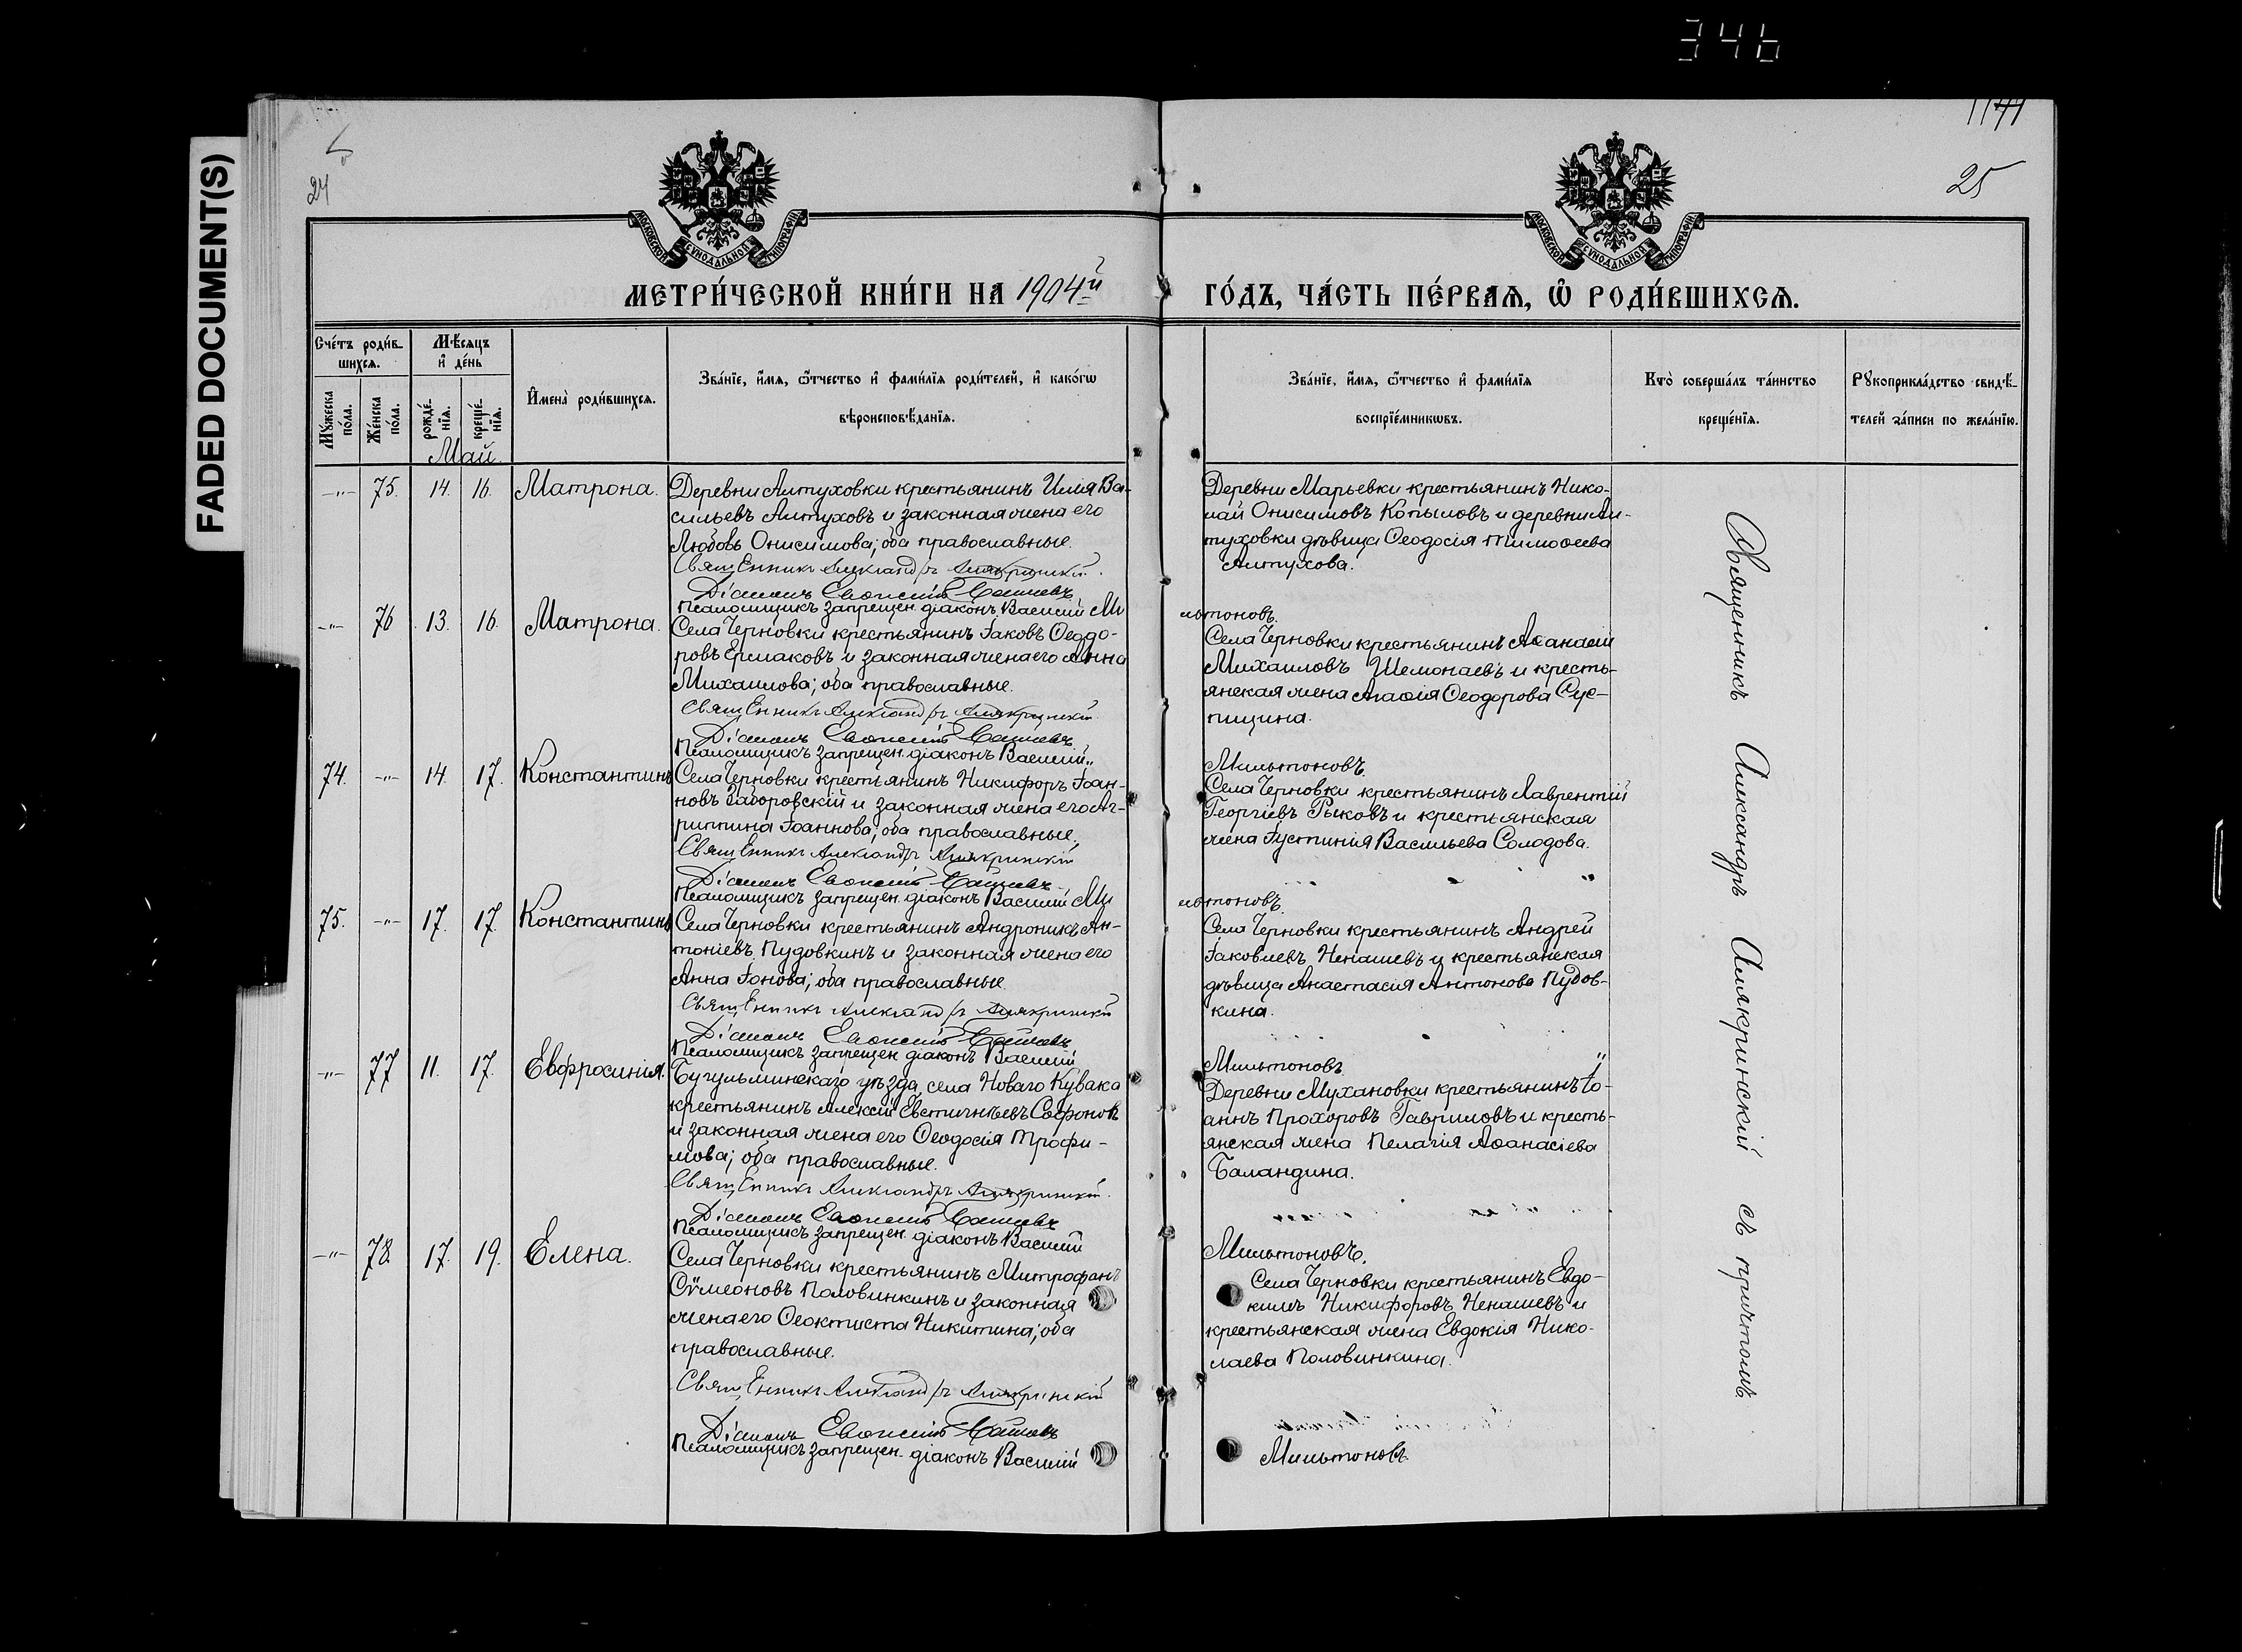 346
FADED DOCUMENT(S)
24
25
МОСКОВСКОЙ СѴНОДАЛЬНОЙ ТИПОГРАФІИ
МОСКОВСКОЙ СѴНОДАЛЬНОЙ ТИПОГРАФІИ
МЕТРИ́ЧЕСКОЙ КНИ́ГИ НА 1904й
ГО́ДЪ, ЧА́СТЬ ПЕ́РВАѦ, Ѡ РОДИ́ВШИХСѦ.
Сче́тъ роди́в-
шихсѧ.
Мꙋ́жеска
по́ла.
Же́нска
по́ла.
Мѣ́сѧцъ
и҆ де́нь
рожде́-
нїѧ.
креще́-
нїѧ.
Май.
И҆мена̀ роди́вшихсѧ.
Зва́нїе, и҆́мѧ, ѻ҆́тчество и҆ фами́лїѧ роди́телей, и҆ како́гѡ
вѣроисповѣ́данїѧ.
Зва́нїе, и҆́мѧ, ѻ҆́тчество и҆ фами́лїѧ
воспрїе́мникѡвъ.
Кто̀ соверша́лъ та́инство
креще́нїѧ.
Рꙋкоприкла́дство свидѣ́-
телей за́писи по жела́нїю.
-"- 75. 14. 16. Матрона.
Деревни Алтуховки крестьянинъ Илія Ва-
сильевъ Алтуховъ и законная жена его
Любовь Онисимова; оба православные.
Священникъ Александръ Алякринскій.
Діаконъ
Псаломщикъ запрещен. діаконъ Василій Ми
льтоновъ.
Деревни Марьевки крестьянинъ Нико-
лай Онисимовъ Копыловъ и деревни Ал-
туховки дѣвица Ѳеодосія Тимоѳеева
Алтухова.
-"- 76 13. 16. Матрона.
Села Черновки крестьянинъ Іаковъ Ѳеодо-
ровъ Ермаковъ и законная жена его Анна
Михаилова; оба православные.
Священникъ Александръ Алякринскій
Діаконъ
Псаломщикъ запрещен. діаконъ Василій
Мильтоновъ.
Села Черновки крестьянинъ Аѳанасій
Михаиловъ Шемонаевъ и кресть-
янская жена Агаѳія Ѳеодорова Сус-
пицина.
74. -"- 14. 17. Константинъ
Села Черновки крестьянинъ Никифоръ Іоан-
новъ Заборовскій и законная жена его Аг-
риппина Іоаннова; оба православные.
Священникъ Александръ Алякринскій
Діаконъ
Псаломщикъ запрещен. діаконъ Василій Ми
льтоновъ.
Села Черновки крестьянинъ Лаврентій
Георгіевъ Рыковъ и крестьянская
жена Іустинія Васильева Солодова.
75. -"- 17. 17. Константинъ
Села Черновки крестьянинъ Андроникъ Ан-
тоніевъ Пудовкинъ и законная жена его
Анна Іонова; оба православные.
Священникъ Александръ Алякринскій
Діаконъ
Псаломщикъ запрещен. діаконъ Василій
Мильтоновъ.
Села Черновки крестьянинъ Андрей
Іаковлевъ Ненашевъ и крестьянская
дѣвица Анастасія Антонова Пудов-
кина.
-"- 77 11. 17. Евфросинія.
Бугульминскаго уѣзда, села Новаго Кувака
крестьянинъ Алексій Евстигнѣевъ Сафоновъ
и законная жена его Ѳеодосія Трофи-
мова; оба православные.
Священникъ Александръ Алякринскій.
Діаконъ
Псаломщикъ запрещен. діаконъ Василій
Мильтоновъ.
Деревни Мухановки крестьянинъ Іо-
аннъ Прохоровъ Гавриловъ и кресть-
янская жена Пелагія Аѳанасіева
Баландина.
-"- 78. 17. 19. Елена.
Села Черновки крестьянинъ Митрофанъ
Сѵмеоновъ Половинкинъ и законная
жена его Ѳеоктиста Никитина; оба
православные.
Священникъ Александръ Алякринскій
Діаконъ
Псаломщикъ запрещен. діаконъ Василій
Мильтоновъ.
Села Черновки крестьянинъ Евдо-
кимъ Никифоровъ Ненашевъ и
крестьянская жена Евдокія Нико-
лаева Половинкина.
Священникъ Александръ Алякринскій съ причтомъ